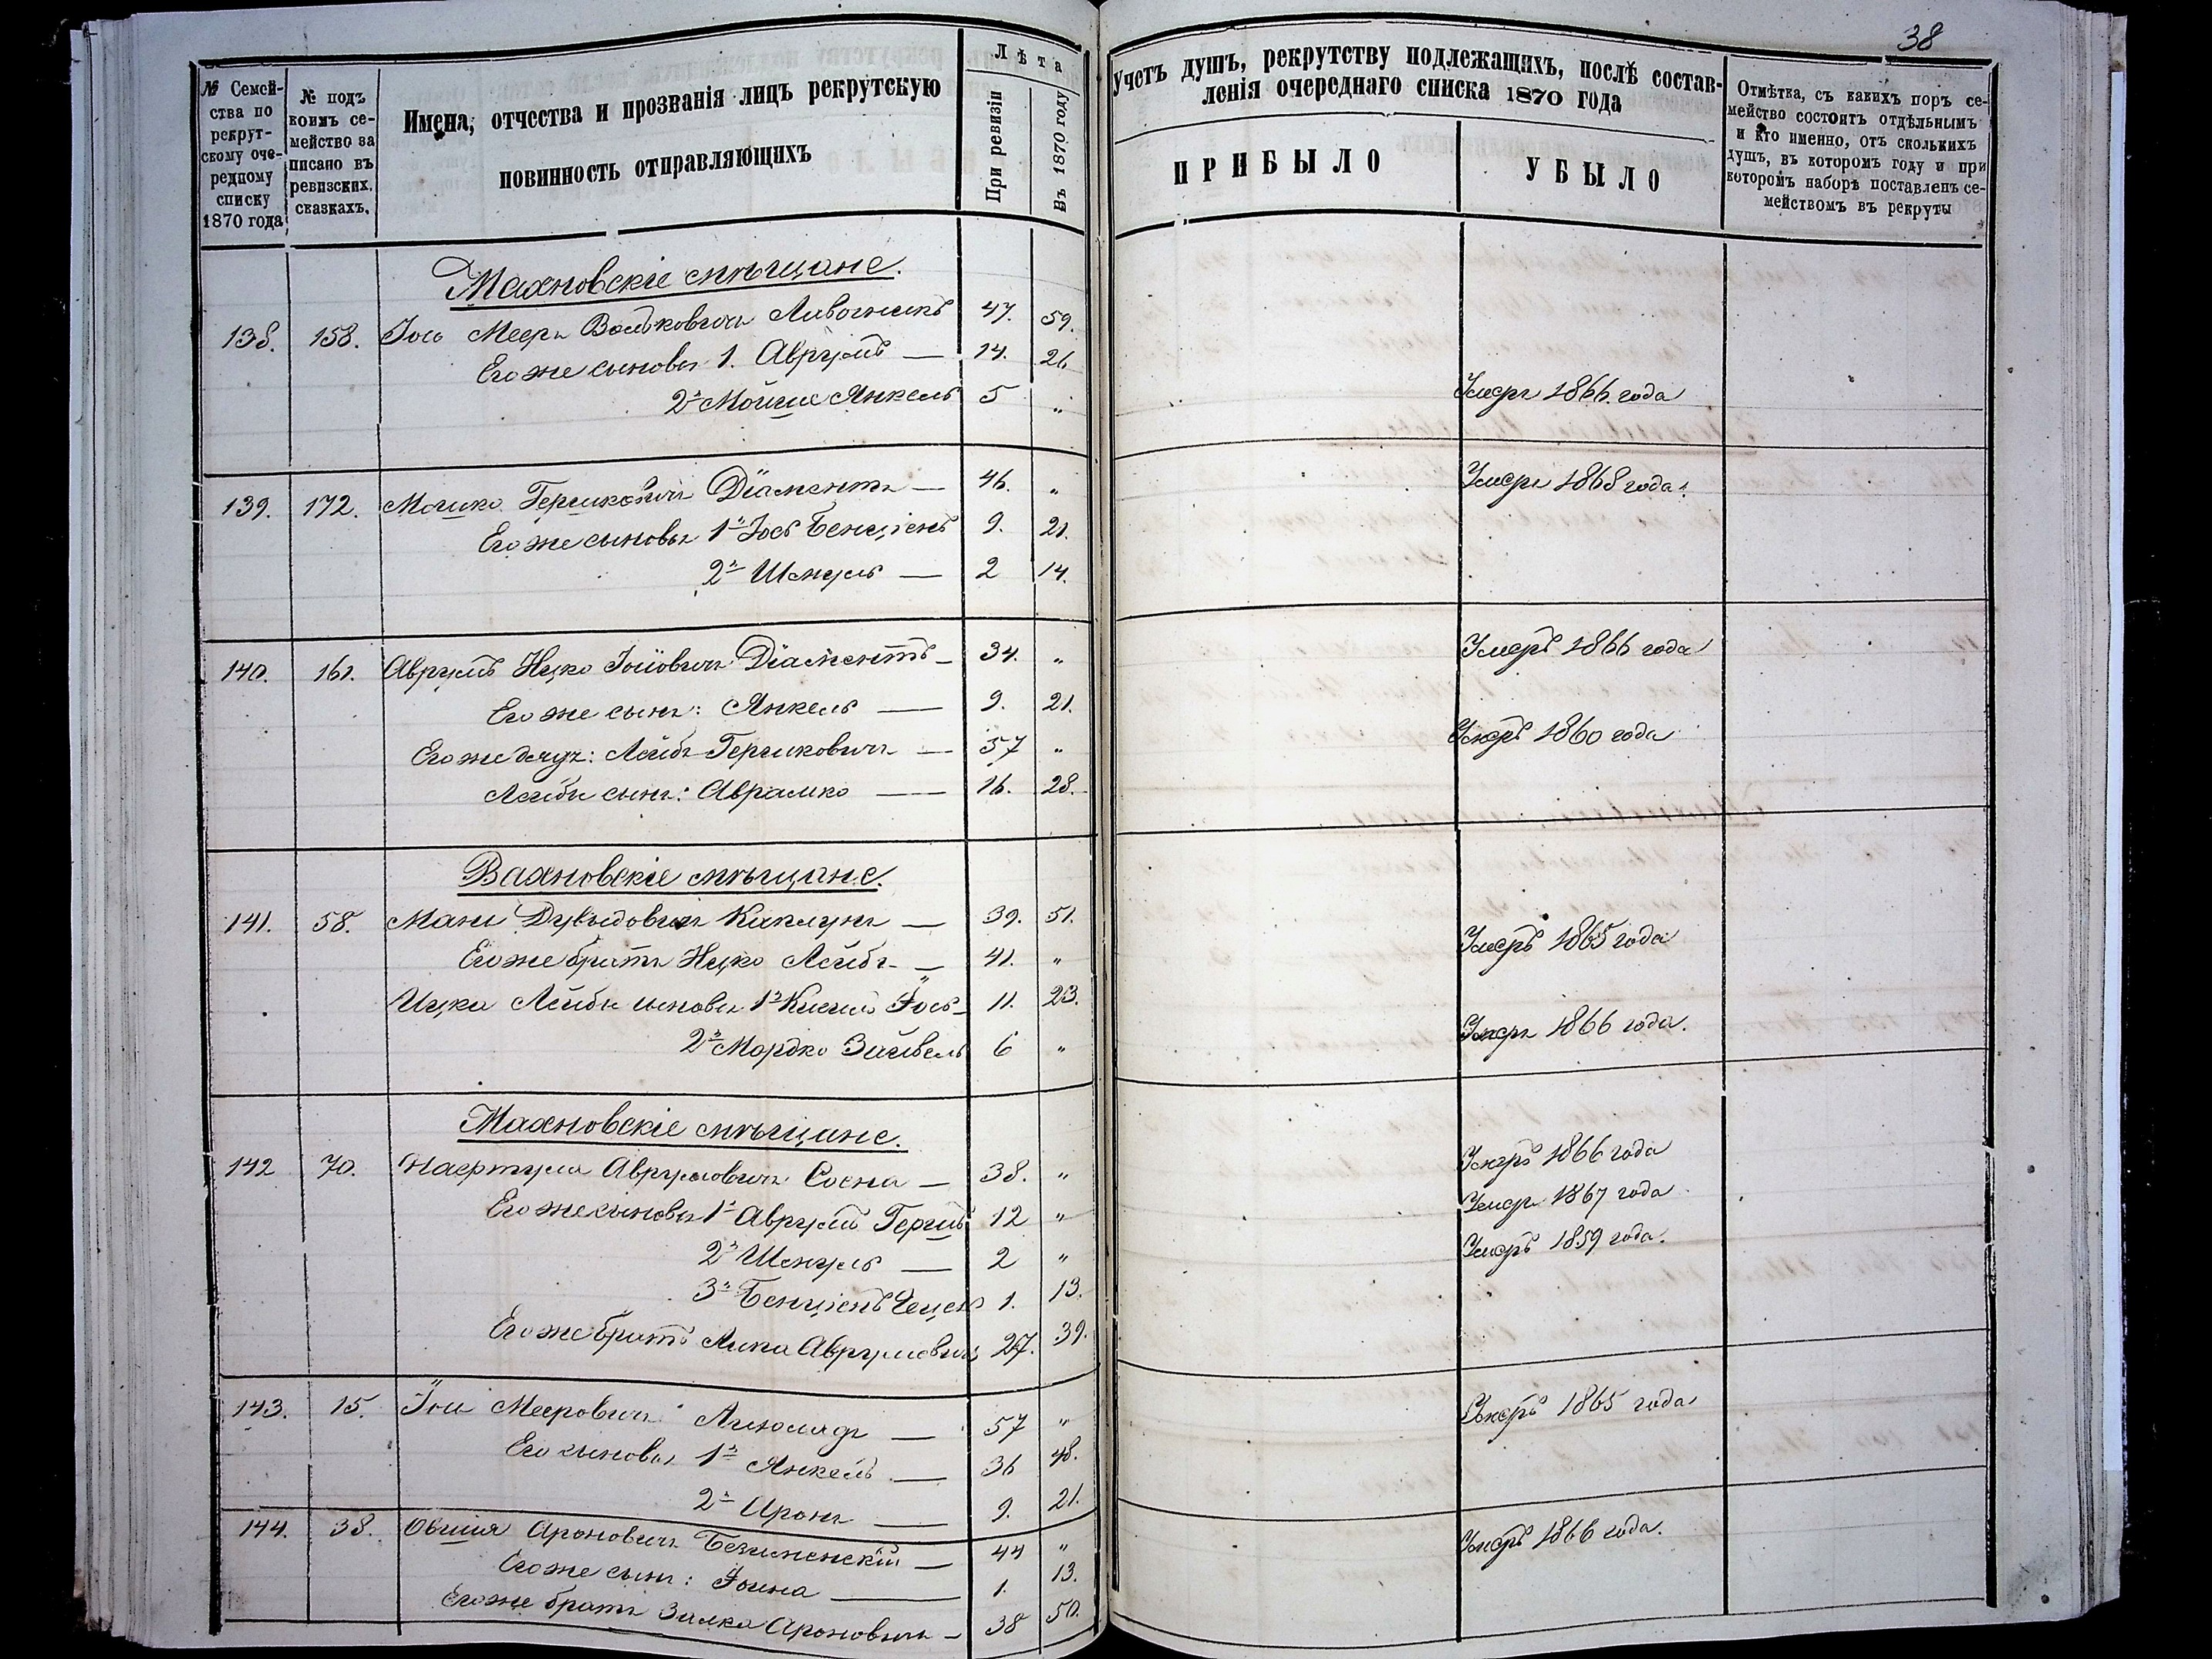 38
№ Семей-
ства по
рекрут-
скому оче-
редному
списку
1870 года
№ подъ
коимъ се-
мейство за
писано въ
ревизскихъ
сказкахъ.
Имена, отчества и прозванія лицъ рекрутскую
повинность отправляющихъ
Лѣта
При ревизіи
Въ 1870 году
Учетъ душъ, рекрутству подлежащихъ, послѣ состав-
ленія очереднаго списка 1870 года
ПРИБЫЛО
УБЫЛО
Отмѣтка, съ какихъ поръ се-
мейство состоитъ отдѣльнымъ
и кто именно, отъ сколькихъ
душъ, въ которомъ году и при
которомъ наборѣ поставленъ се-
мействомъ въ рекруты
Махновскіе мѣщане.
138. 158. Іось Мееръ Вольковичъ 47. 59.
Его же сыновья 1. Аврумъ — 14. 26
2й Мойше Янкель 5 " Умеръ 1866 года
139. 172. Мошко Гершковичъ Діаментъ — 46. " Умеръ 1868 года.
Его же сыновья 1й Іось Бенціенъ 9. 21.
2й Шмуль — 2 14.
140. 161. Аврумъ Ицко Іосіовичъ Діаментъ — 34. " Умеръ 1866 года
Его же сынъ: Янкель — 9. 21.
Его же дядя: Лейба Гершковичъ — 57 " Умеръ 1860 года
Лейбы сынъ: Аврамко — 16. 28.
Вахновскіе мѣщане.
141. 58. Мани Дувыдовичъ — 39. 51.
Его же братъ Ицко Лейба — 41. " Умеръ 1865 года
Ицка Лейбы сыновья 1й Іось — 11. 23.
2й Мордко Зайвель 6 " Умеръ 1866 года.
Махновскіе мѣщане.
142 70. Нафтула Аврумовичъ Сосна — 38. " Умеръ 1866 года
Его же сыновья 1й Аврумъ Гершъ 12 " Умеръ 1867 года
2й Шмуль — 2 " Умеръ 1859 года.
3й Бенціенъ 1. 13.
Его же братъ Аврумовичъ 27. 39.
143. 15. Іось Мееровичъ — 57 " Умеръ 1865 года
Его сыновья 1й Янкель — 36 48.
2й Аронъ — 9. 21.
144. 38. Овшія Ароновичъ Безименскій — 44 " Умеръ 1866 года.
Его же сынъ: Іоина — 1. 13.
Его же братъ Залка Ароновичъ — 38 50.